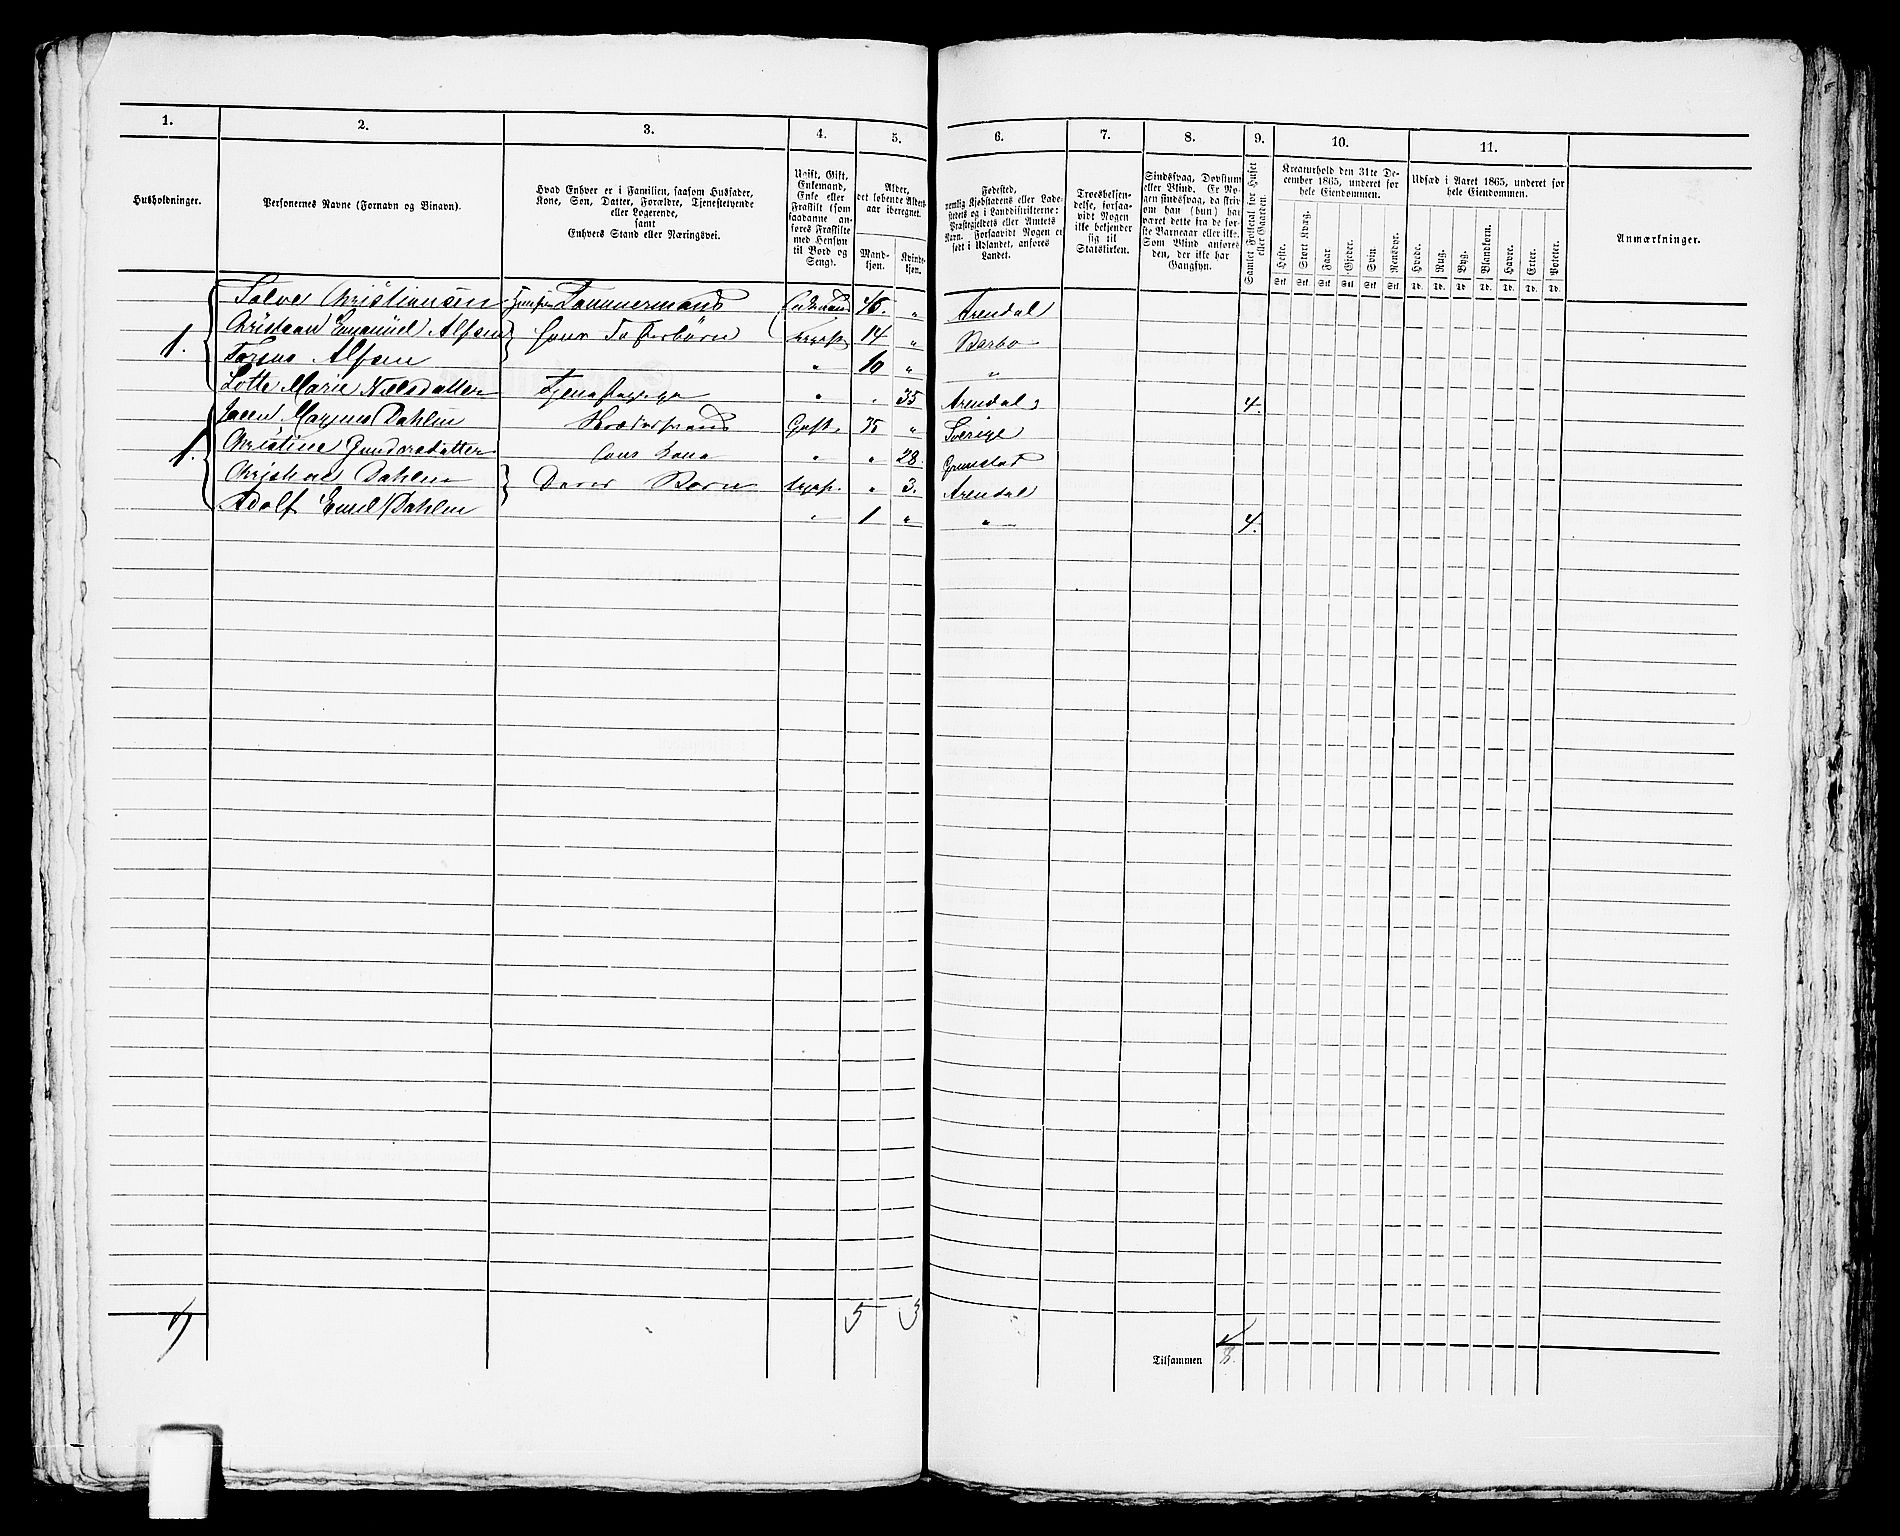 1. 2. 3. 4. 5. 6. 7. 8. 9. 10. 11.
Husholdninger.
Personernes Navne (Fornavn og Binavn).
Hvad Enhver er i Familien, saasom Husfader,
Kone, Søn, Datter, Forældre, Tjenestetyende
eller Logerende,
samt
Enhvers Stand eller Næringsvei.
Ugift, Gift,
Enkemand,
Enke eller
Fraskilt (som
saadanne an-
føres Fraskilte
med Hensyn
til Bord og
Seng).
Alder,
det løbende Alders-
aar iberegnet.
Mand-
kjøn.
Kvinde-
kjøn.
Fødested,
nemlig Kjøbstadens eller Lade-
stedets og i Landdistrikterne:
Præstegjeldets eller Amtets
Navn. Forsaavidt Nogen er
født i Udlandet, anføres
Landet.
Troesbekjen-
delse, forsaa-
vidt Nogen
ikke bekjender
sig til
Statskirken.
Sindssvag, Døvstum
eller Blind. Er No-
gen sindssvag, da skriv
om han (hun) har
været dette fra de før-
ste Barneaar eller ikke.
Som Blind anføres
den, der ikke har
Gangsyn.
Samlet Folketal for Huset
eller Gaarden.
Kreaturhold den 31te De-
cember 1865, underet for
hele Eiendommen.
Heste. Stort Kvæg. Faar. Gjeder. Svin. Rensdyr.
Stk. Stk. Stk. Stk. Stk. Stk.
Udsæd i Aaret 1865, underet for
hele Eiendommen.
Hvede. Rug. Byg. Blandkorn. Havre. Erter. Poteter.
Td. Td. Td. Td. Td. Td. Td.
Anmærkninger.
Salve Christiansen Tømmermand Enkemand 46. „ Arendal
Christian Emanuel Alfsen hans Søsterbørn ugift 14 „ Barbo
1. Alfsen „ 10 „ „
Lotte Marie Nielsdatter Tjenestepige „ „ 35 Arendal 4.
Magnus Dahlen Gift. 35 „ Sverige
1. Christine Gundersdatter hans Kone „ „ 28. Grimstad
Dahlen Deres Børn ugift. „ 3. Arendal
Adolf Emil Dahlen „ 1 „ „ 4.
5 3
Tilsammen 8.